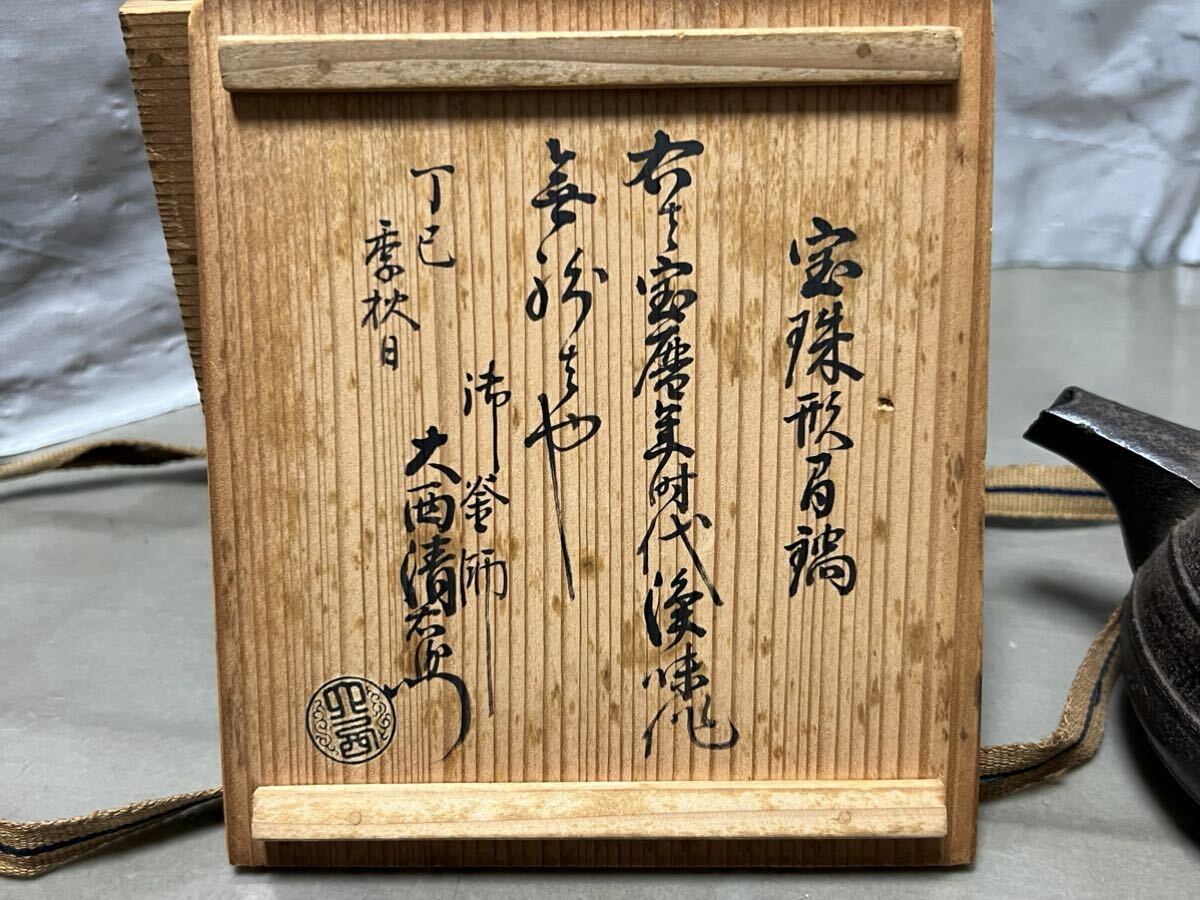 宝珠形間鍋
右者宝暦年時代浄味作
無紛者也
御釜師
大西清右衛門
丁巳
季秋日